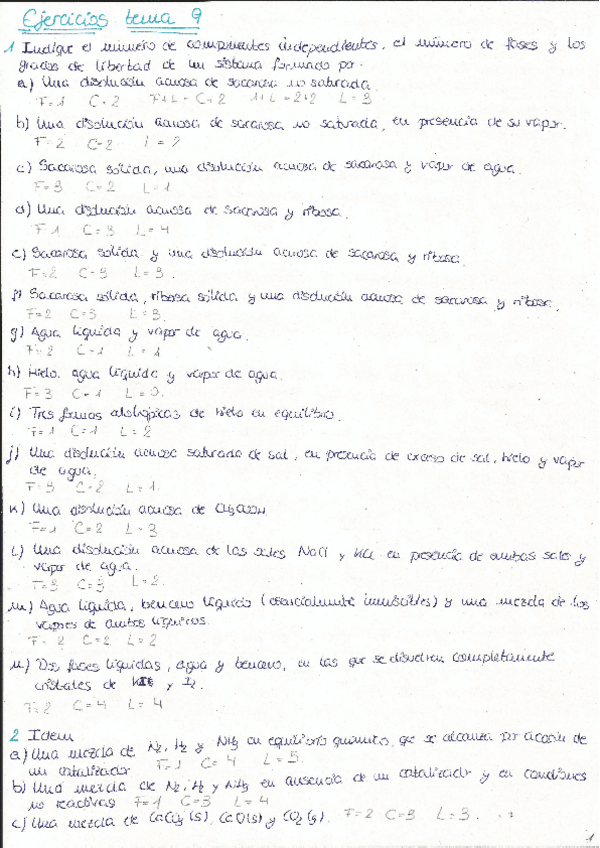 Ejercicios tema 9
1 Indique el número de componentes independientes, el número de fases y los
grados de libertad de un sistema formado por:
a) Una disolución acuosa de sacarosa no saturada.
F=1 C=2 F+L=C+2 1+L=2+2 L=3
b) Una disolución acuosa de sacarosa no saturada, en presencia de su vapor.
F=2 C=2 L=2
c) Sacarosa sólida, una disolución acuosa de sacarosa y vapor de agua.
F=3 C=2 L=1
d) Una disolución acuosa de sacarosa y ribosa.
F=1 C=3 L=4
e) Sacarosa sólida y una disolución acuosa de sacarosa y ribosa.
F=2 C=3 L=3.
f) Sacarosa sólida, ribosa sólida y una disolución acuosa de sacarosa y ribosa.
F=2 C=3 L=3.
g) Agua líquida y vapor de agua.
F=2 C=1 L=1
h) Hielo, agua líquida y vapor de agua.
F=3 C=1 L=0.
i) Tres formas alotrópicas de hielo en equilibrio.
F=1 C=1 L=2
j) Una disolución acuosa saturada de sal, en presencia de exceso de sal, hielo y vapor
de agua.
F=3 C=2 L=1.
k) Una disolución acuosa de CH3COOH
F=1 C=2 L=3
l) Una disolución acuosa de las sales NaCl y KCl en presencia de ambas sales y
vapor de agua.
F=3 C=3 L=2.
m) Agua líquida, benceno líquido (parcialmente inmiscibles) y una mezcla de los
vapores de ambos líquidos.
F=2 C=2 L=2
n) Dos fases líquidas, agua y benceno, en las que se disuelven completamente
cristales de y I2.
F=2 C=4 L=4
2 Idem
a) Una mezcla de N2, H2 y NH3 en equilibrio químico, que se alcanza por acción de
un catalizador F=1 C=4 L=5.
b) Una mezcla de N2, H2 y NH3 en ausencia de un catalizador y en condiciones
no reactivas F=1 C=3 L=4
c) Una mezcla de CaCO3(s), CaO(s) y CO2(g). F=2 C=3 L=3.
1